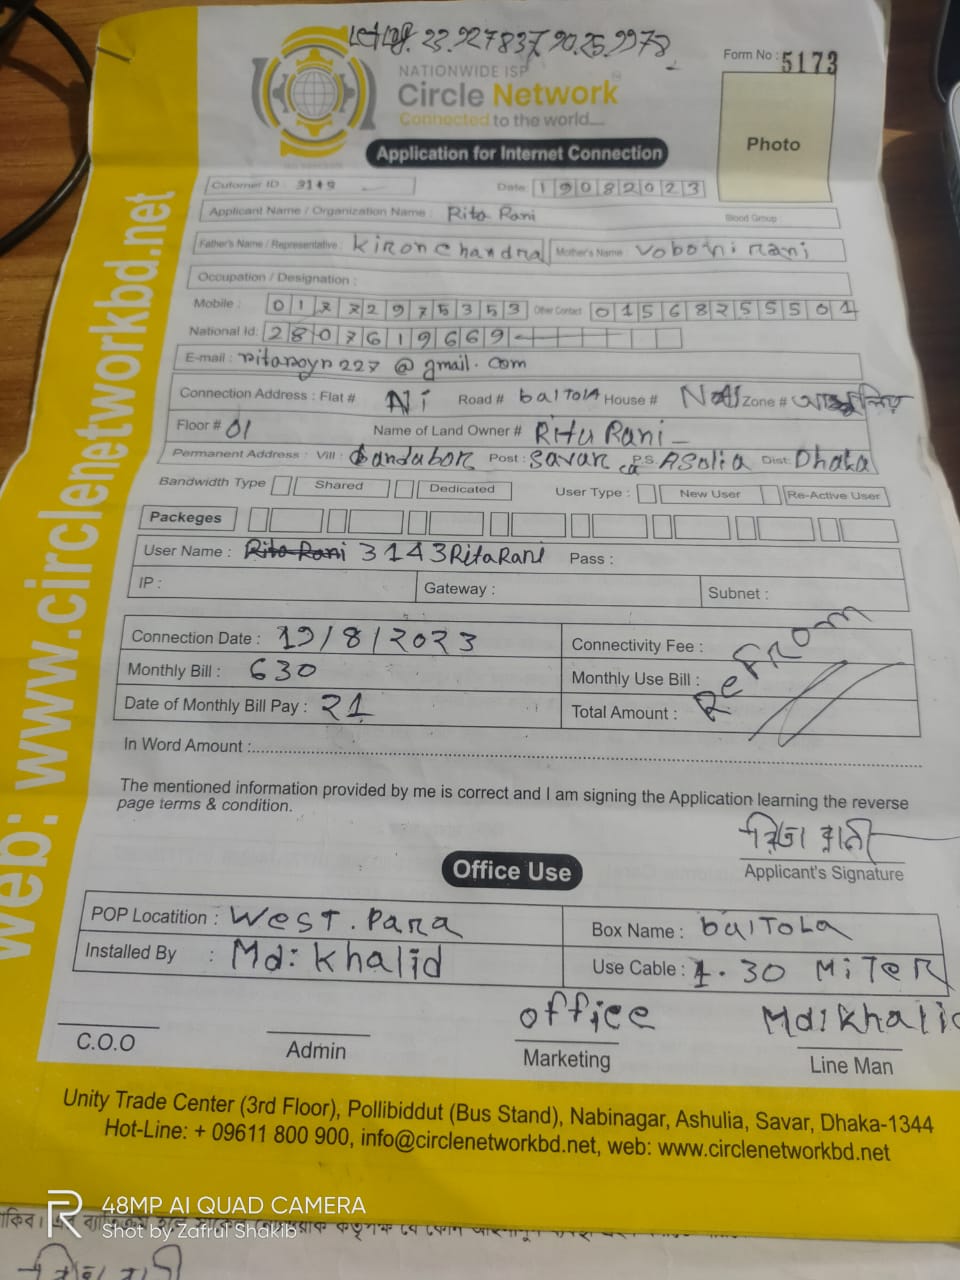 Let Log. 23.927837, 90.25.9978
NATIONWIDE ISP
Circle Network
Connected to the world....
Form No : 5173
Photo
Application for Internet Connection
Cutomer ID : 3143 Date: 19082023
Applicant Name / Organization Name : Rita Rani Blood Group :
Father's Name / Representative : Kiron Chandra Mother's Name : Vobo ni rani
Occupation / Designation :
Mobile : 01772975353 Other Contact 01568255501
National Id: 2807619669
E-mail : ritaroyn227@gmail.com
Connection Address : Flat # Ni Road # balTolA House # Zone #
Floor # 01 Name of Land Owner # Ritu Rani
Permanent Address : Vill : Dandabor Post : Savar P.S. ASolia Dist: Dhaka
Bandwidth Type Shared Dedicated User Type : New User Re-Active User
Packeges
User Name : 3143RitaRani Pass :
IP : Gateway : Subnet :
Connection Date : 19/8/2023 Connectivity Fee :
Monthly Bill : 630 Monthly Use Bill :
Date of Monthly Bill Pay : 21 Total Amount :
ReFrom
In Word Amount :
The mentioned information provided by me is correct and I am signing the Application learning the reverse
page terms & condition.
রিতা রানী
Applicant's Signature
Office Use
POP Locatition : West.Para Box Name : balToLa
Installed By : Md: Khalid Use Cable : 1.30 MiTeR
office Md:Khalid
C.O.O Admin Marketing Line Man
Unity Trade Center (3rd Floor), Pollibiddut (Bus Stand), Nabinagar, Ashulia, Savar, Dhaka-1344
Hot-Line: + 09611 800 900, info@circlenetworkbd.net, web: www.circlenetworkbd.net
web: www.circlenetworkbd.net
48MP AI QUAD CAMERA
Shot by Zafrul Shakib